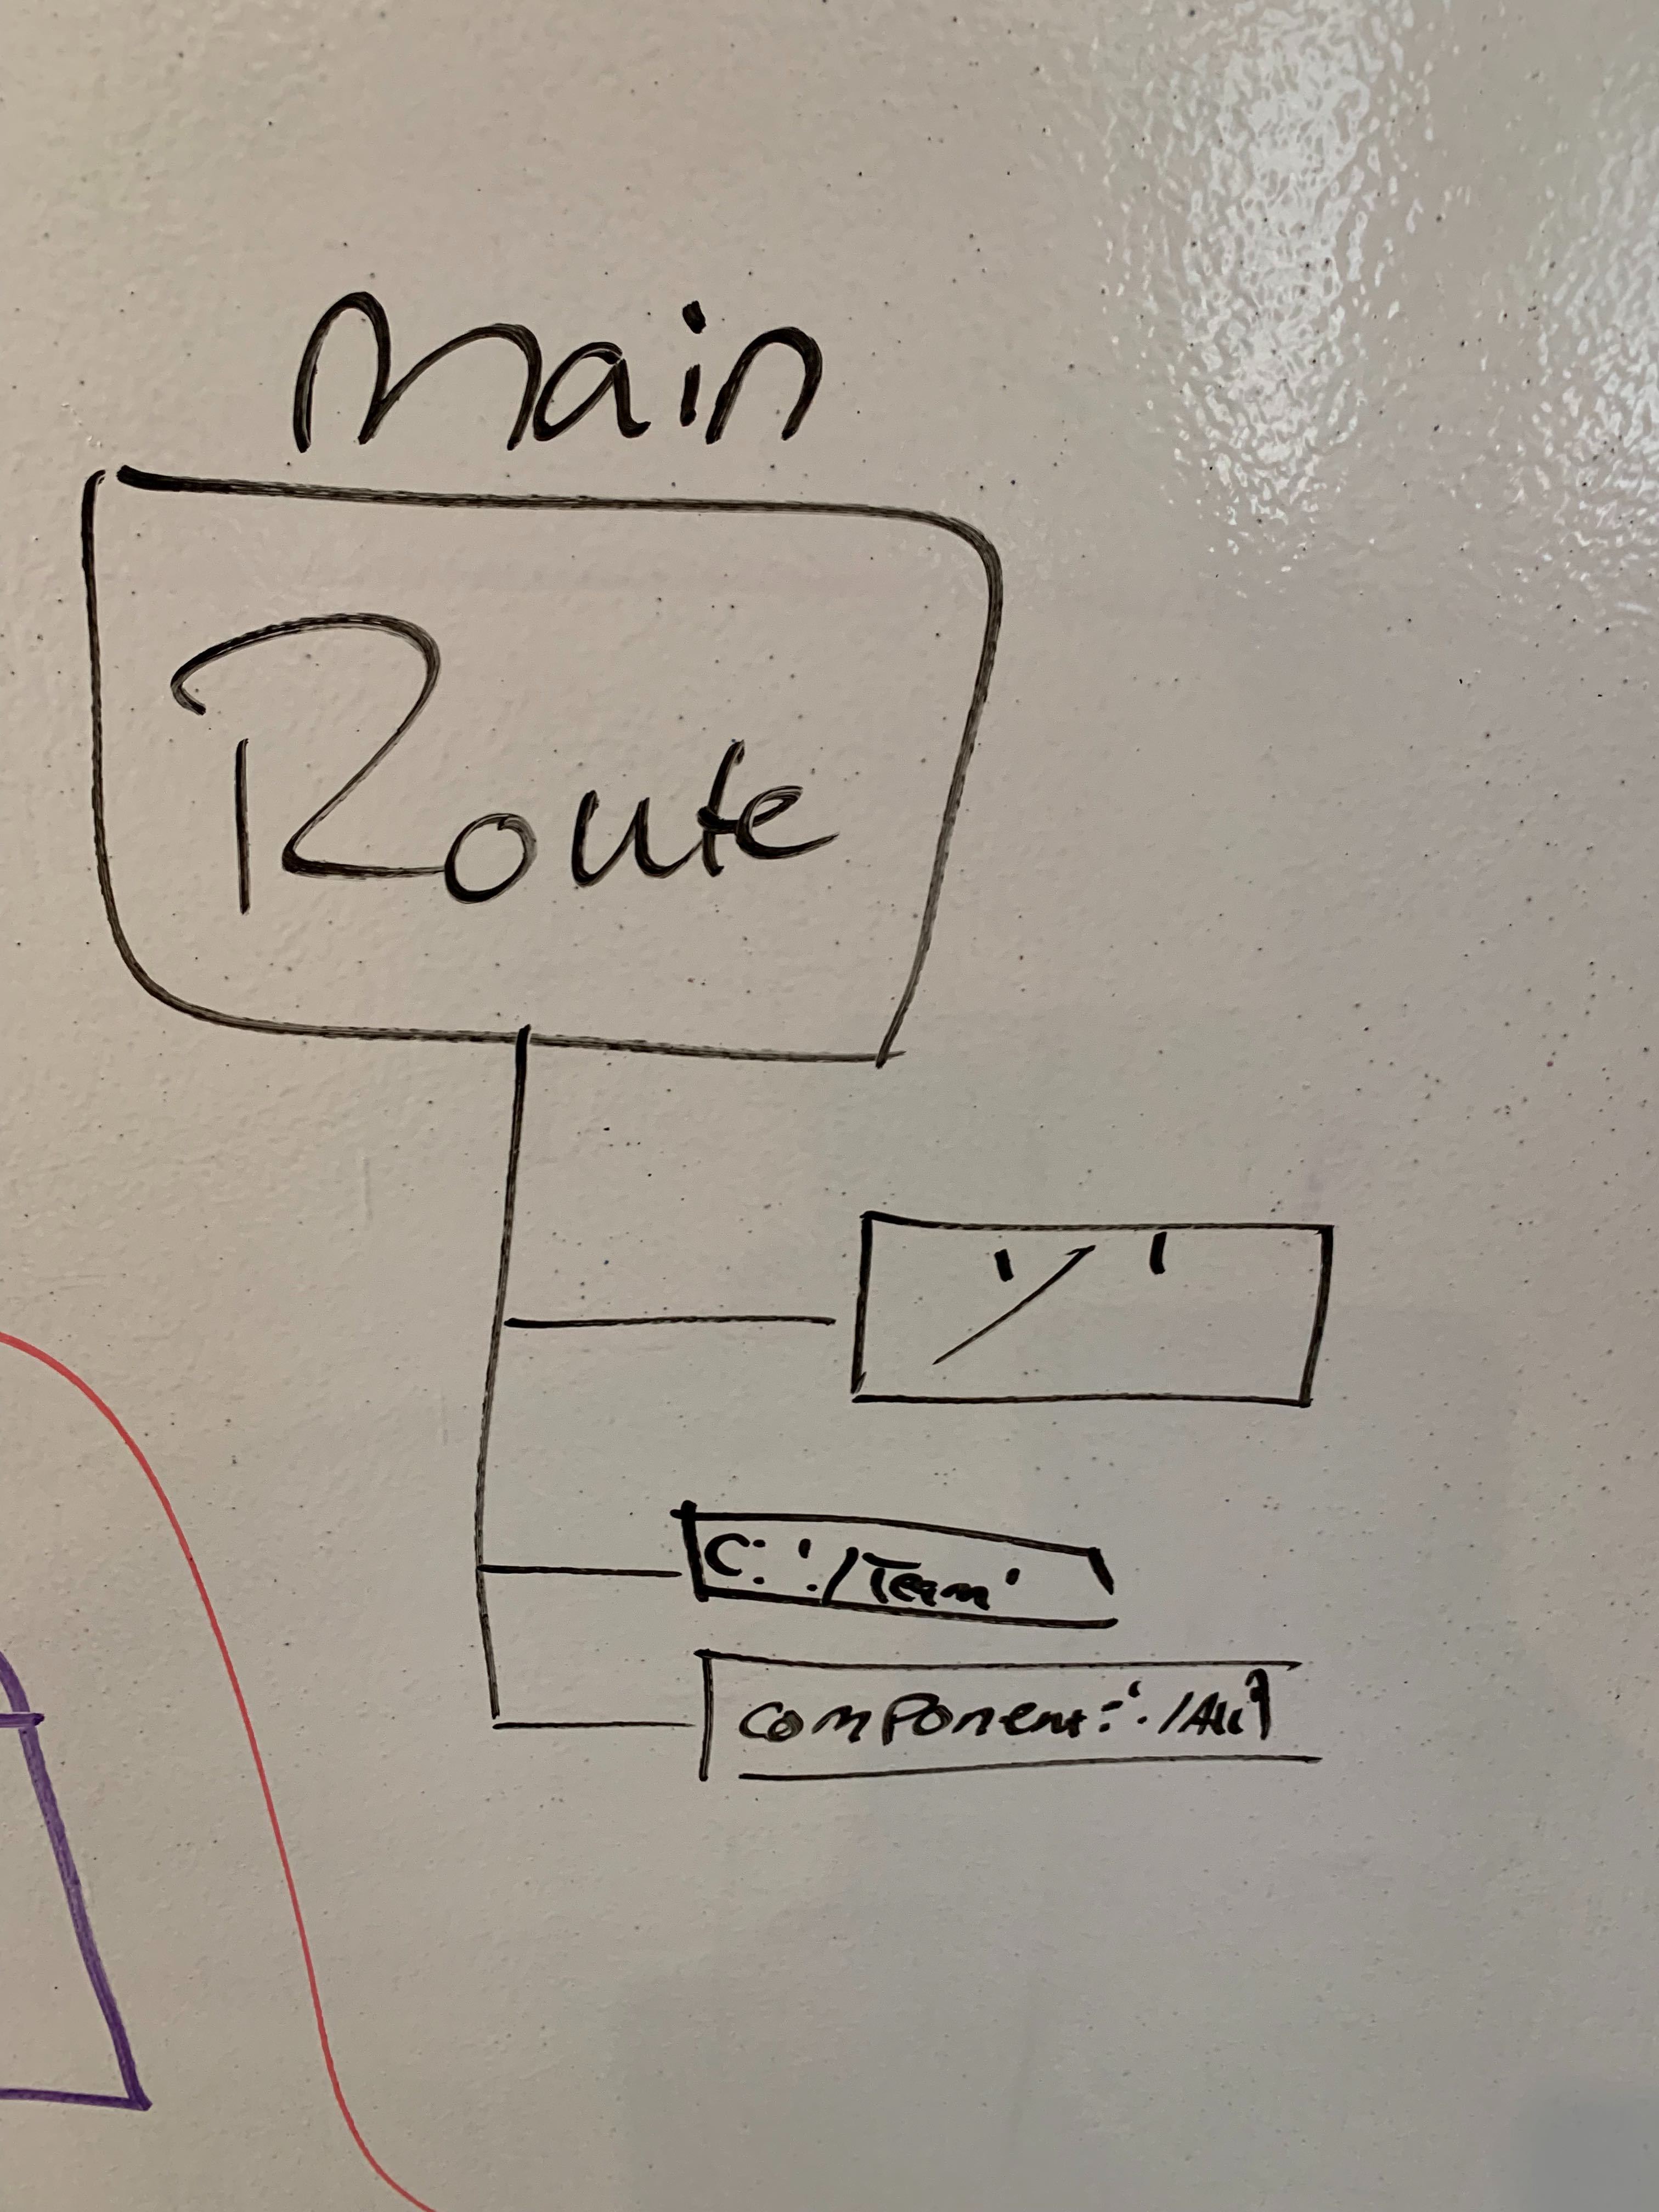 Main
Route
'/'
C: './Team'
component: './